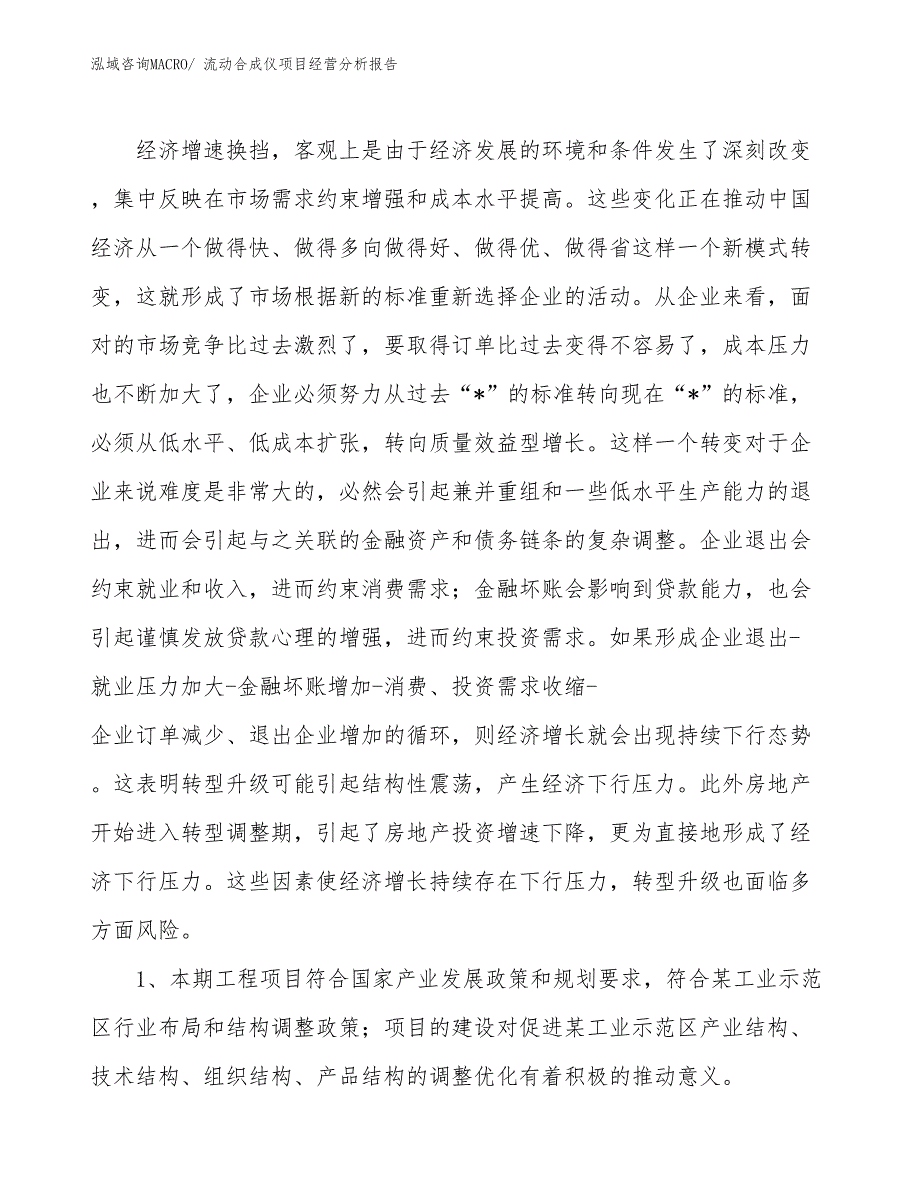 泓域咨询MACRO/ 流动合成仪项目经营分析报告
经济增速换挡，客观上是由于经济发展的环境和条件发生了深刻改变
，集中反映在市场需求约束增强和成本水平提高。这些变化正在推动中国
经济从一个做得快、做得多向做得好、做得优、做得省这样一个新模式转
变，这就形成了市场根据新的标准重新选择企业的活动。从企业来看，面
对的市场竞争比过去激烈了，要取得订单比过去变得不容易了，成本压力
也不断加大了，企业必须努力从过去“*”的标准转向现在“*”的标准，
必须从低水平、低成本扩张，转向质量效益型增长。这样一个转变对于企
业来说难度是非常大的，必然会引起兼并重组和一些低水平生产能力的退
出，进而会引起与之关联的金融资产和债务链条的复杂调整。企业退出会
约束就业和收入，进而约束消费需求；金融坏账会影响到贷款能力，也会
引起谨慎发放贷款心理的增强，进而约束投资需求。如果形成企业退出-
就业压力加大-金融坏账增加-消费、投资需求收缩-
企业订单减少、退出企业增加的循环，则经济增长就会出现持续下行态势
。这表明转型升级可能引起结构性震荡，产生经济下行压力。此外房地产
开始进入转型调整期，引起了房地产投资增速下降，更为直接地形成了经
济下行压力。这些因素使经济增长持续存在下行压力，转型升级也面临多
方面风险。
1、本期工程项目符合国家产业发展政策和规划要求，符合某工业示范
区行业布局和结构调整政策；项目的建设对促进某工业示范区产业结构、
技术结构、组织结构、产品结构的调整优化有着积极的推动意义。